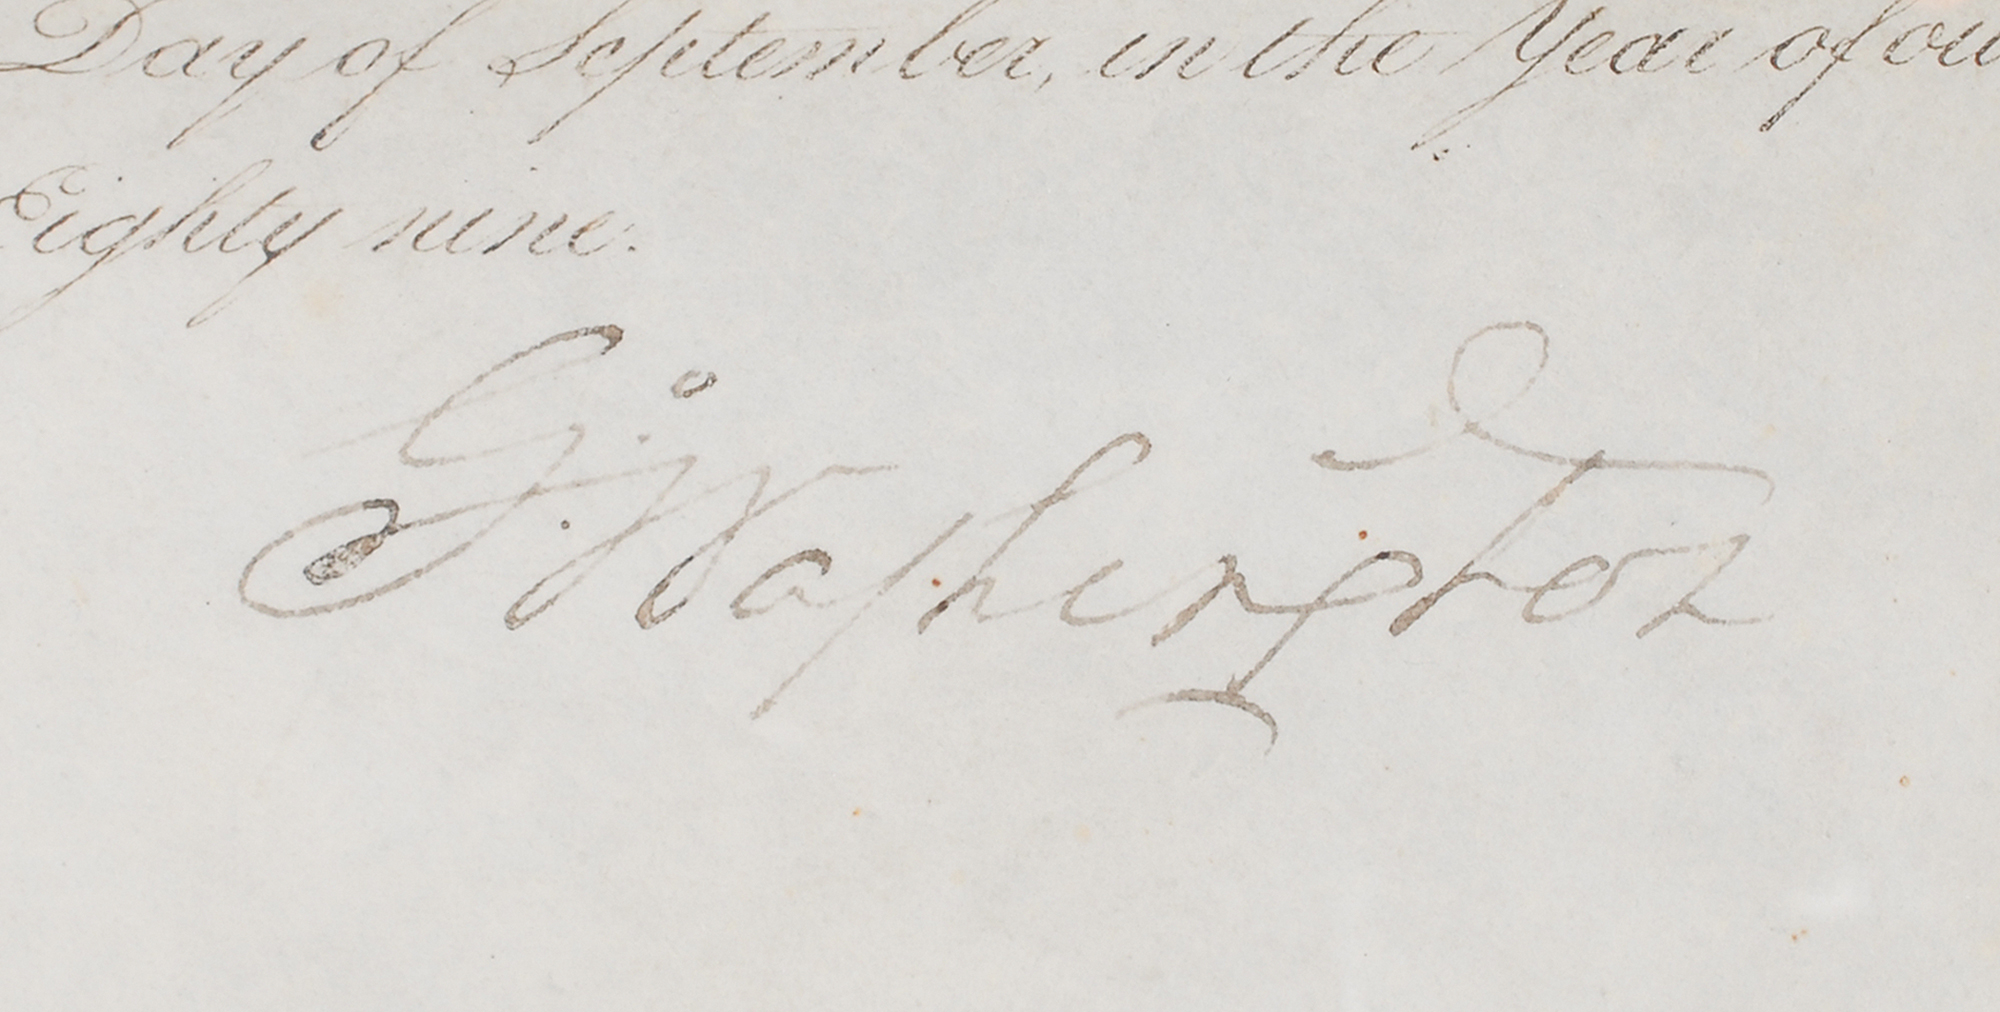 Day of September, in the Year of our
Eighty nine.
G:º Washington